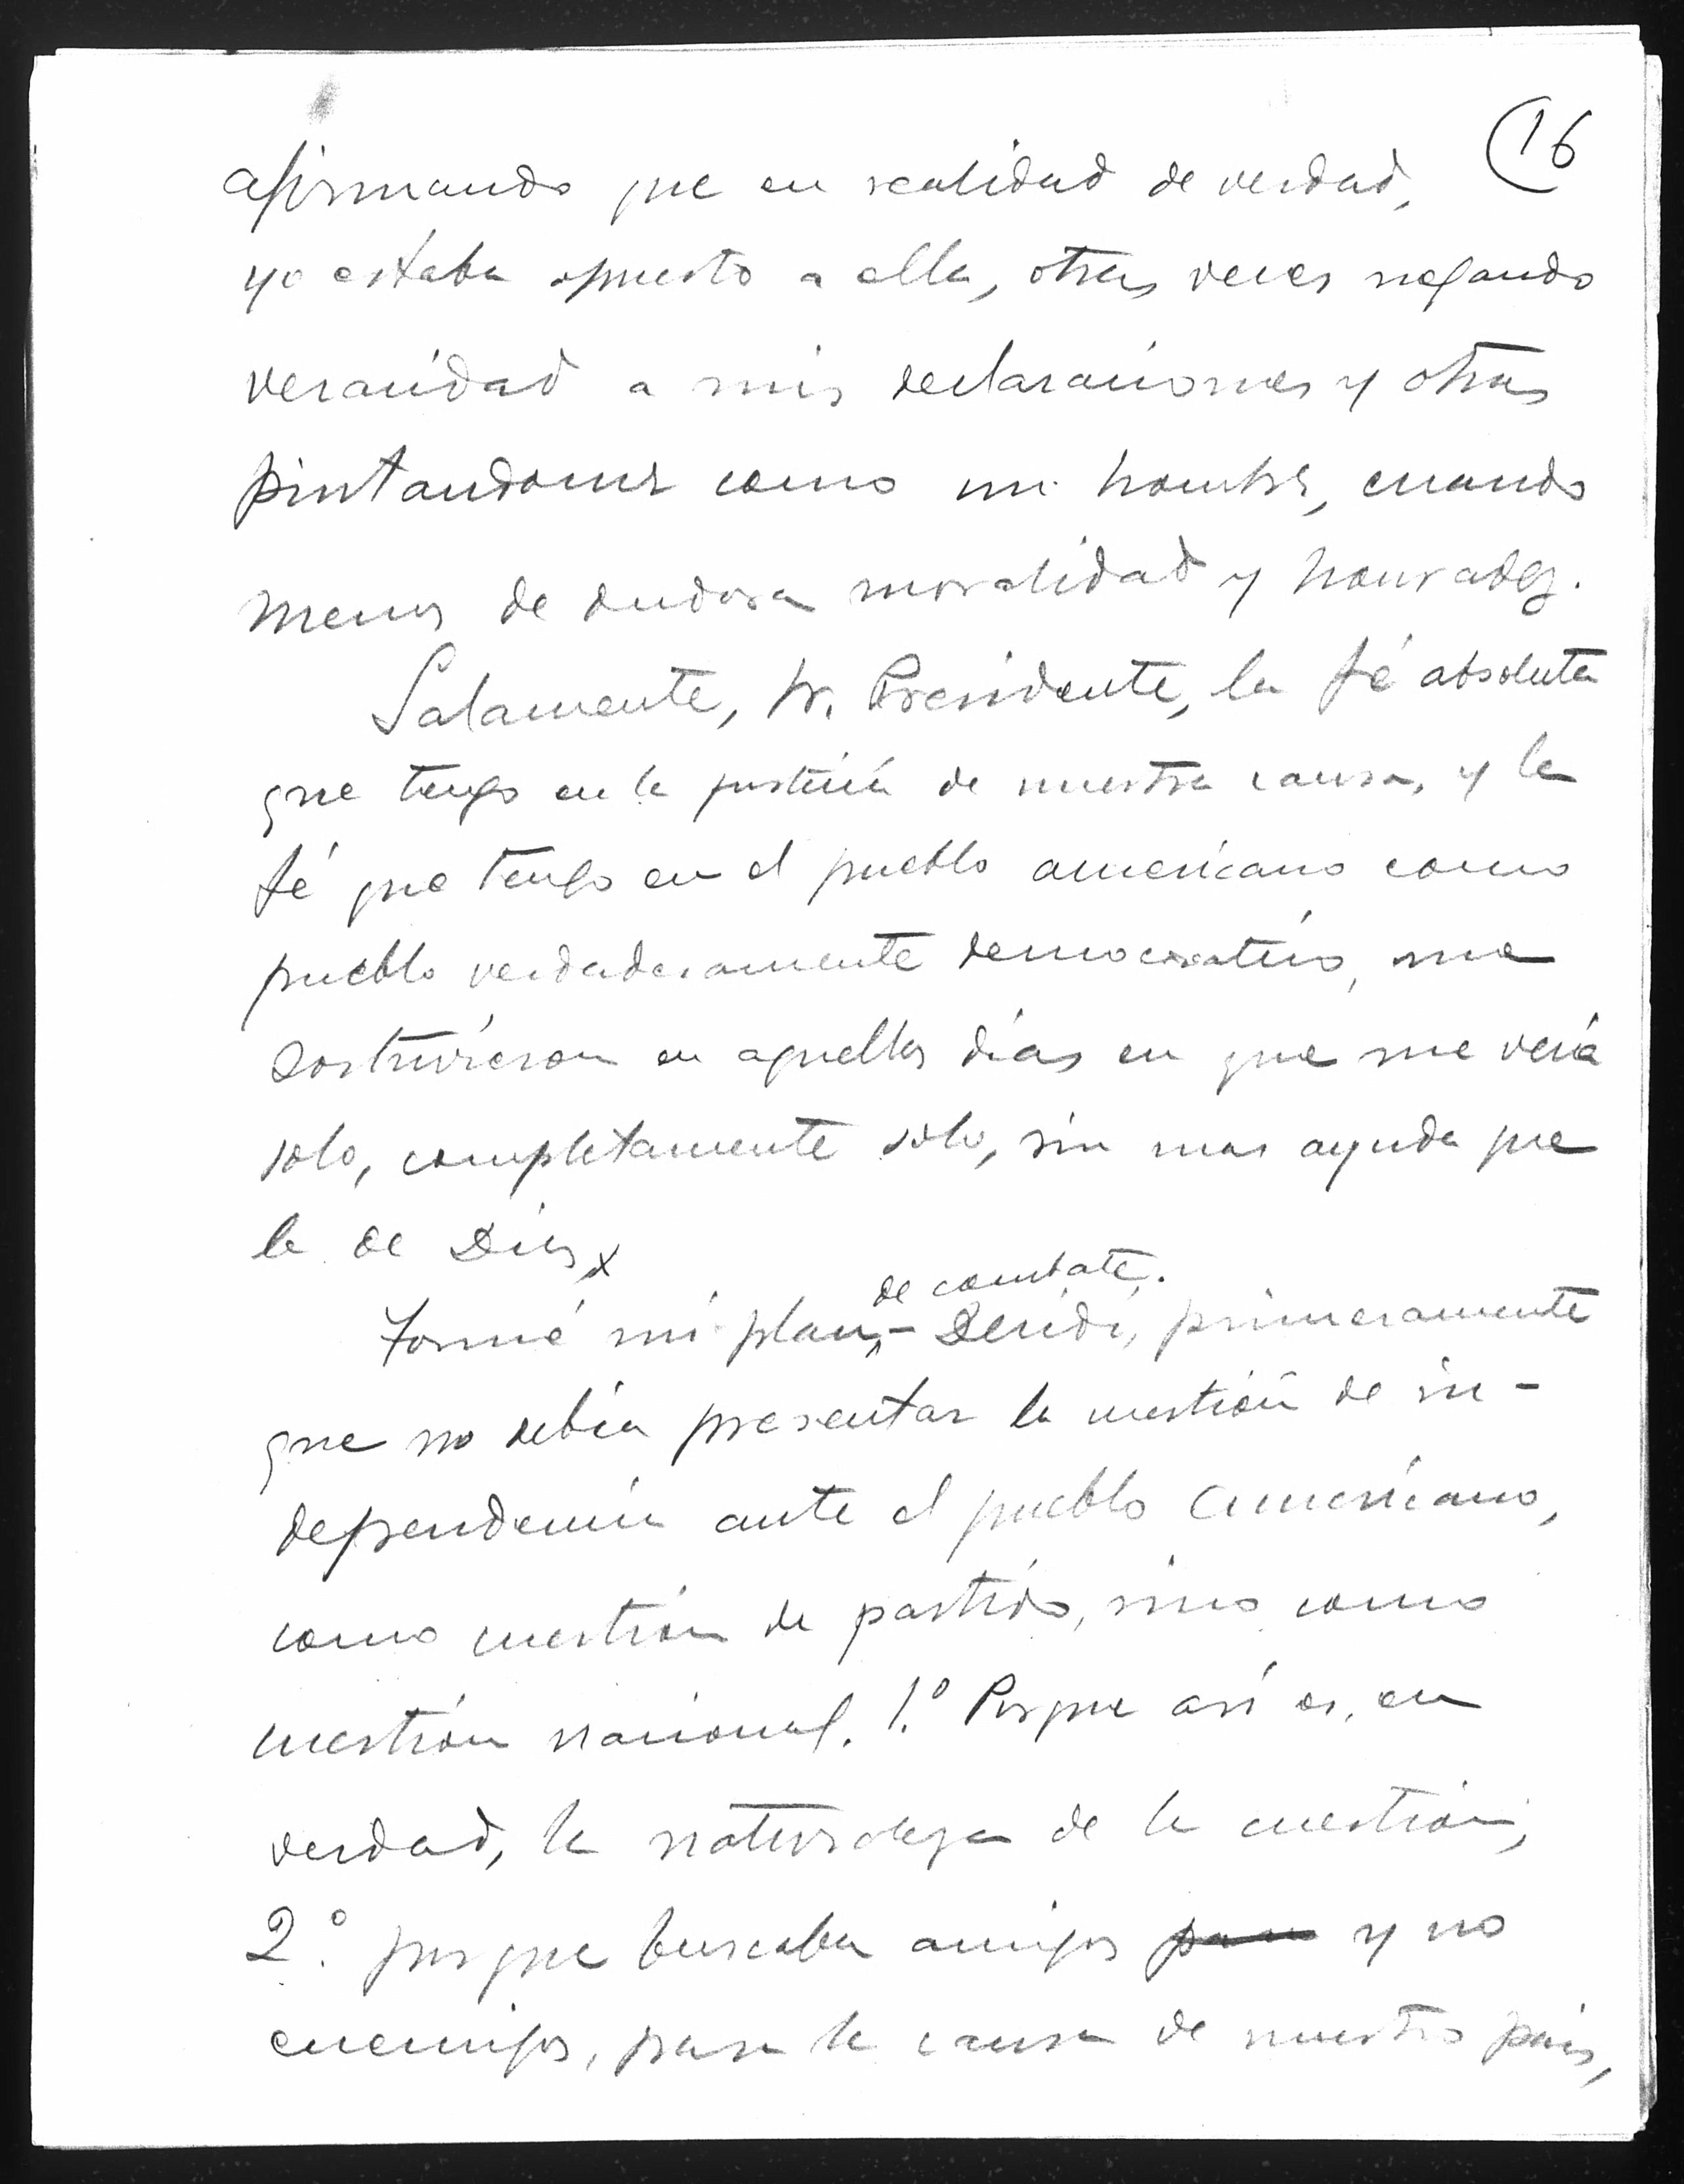 16
afirmando que en realidad de verdad,
yo estaba opuesto a ella, otras veces negando
veracidad a mis declaraciones y otras
pintandome como un hombre, cuando
menos de dudosa moralidad y honradez.
Solamente, Sr. Presidente, la fé absoluta
que tengo en la justicia de nuestra causa, y la
fé que tengo en el pueblo americano como
pueblo verdaderamente democratico, me
sostuvieron en aquellos días en que me veía
solo, completamente solo, sin mas ayuda que
la de Dios x
de combate.
Formé mi plan, - Decidí, primeramente
que no debía presentar la cuestión de in-
dependencia ante el pueblo americano,
como cuestión de partido, sino como
cuestión nacional. 1.º Porque así es, en
verdad, la naturaleza de la cuestión,
2.º porque buscaba amigos para y no
enemigos, para la causa de nuestro país,